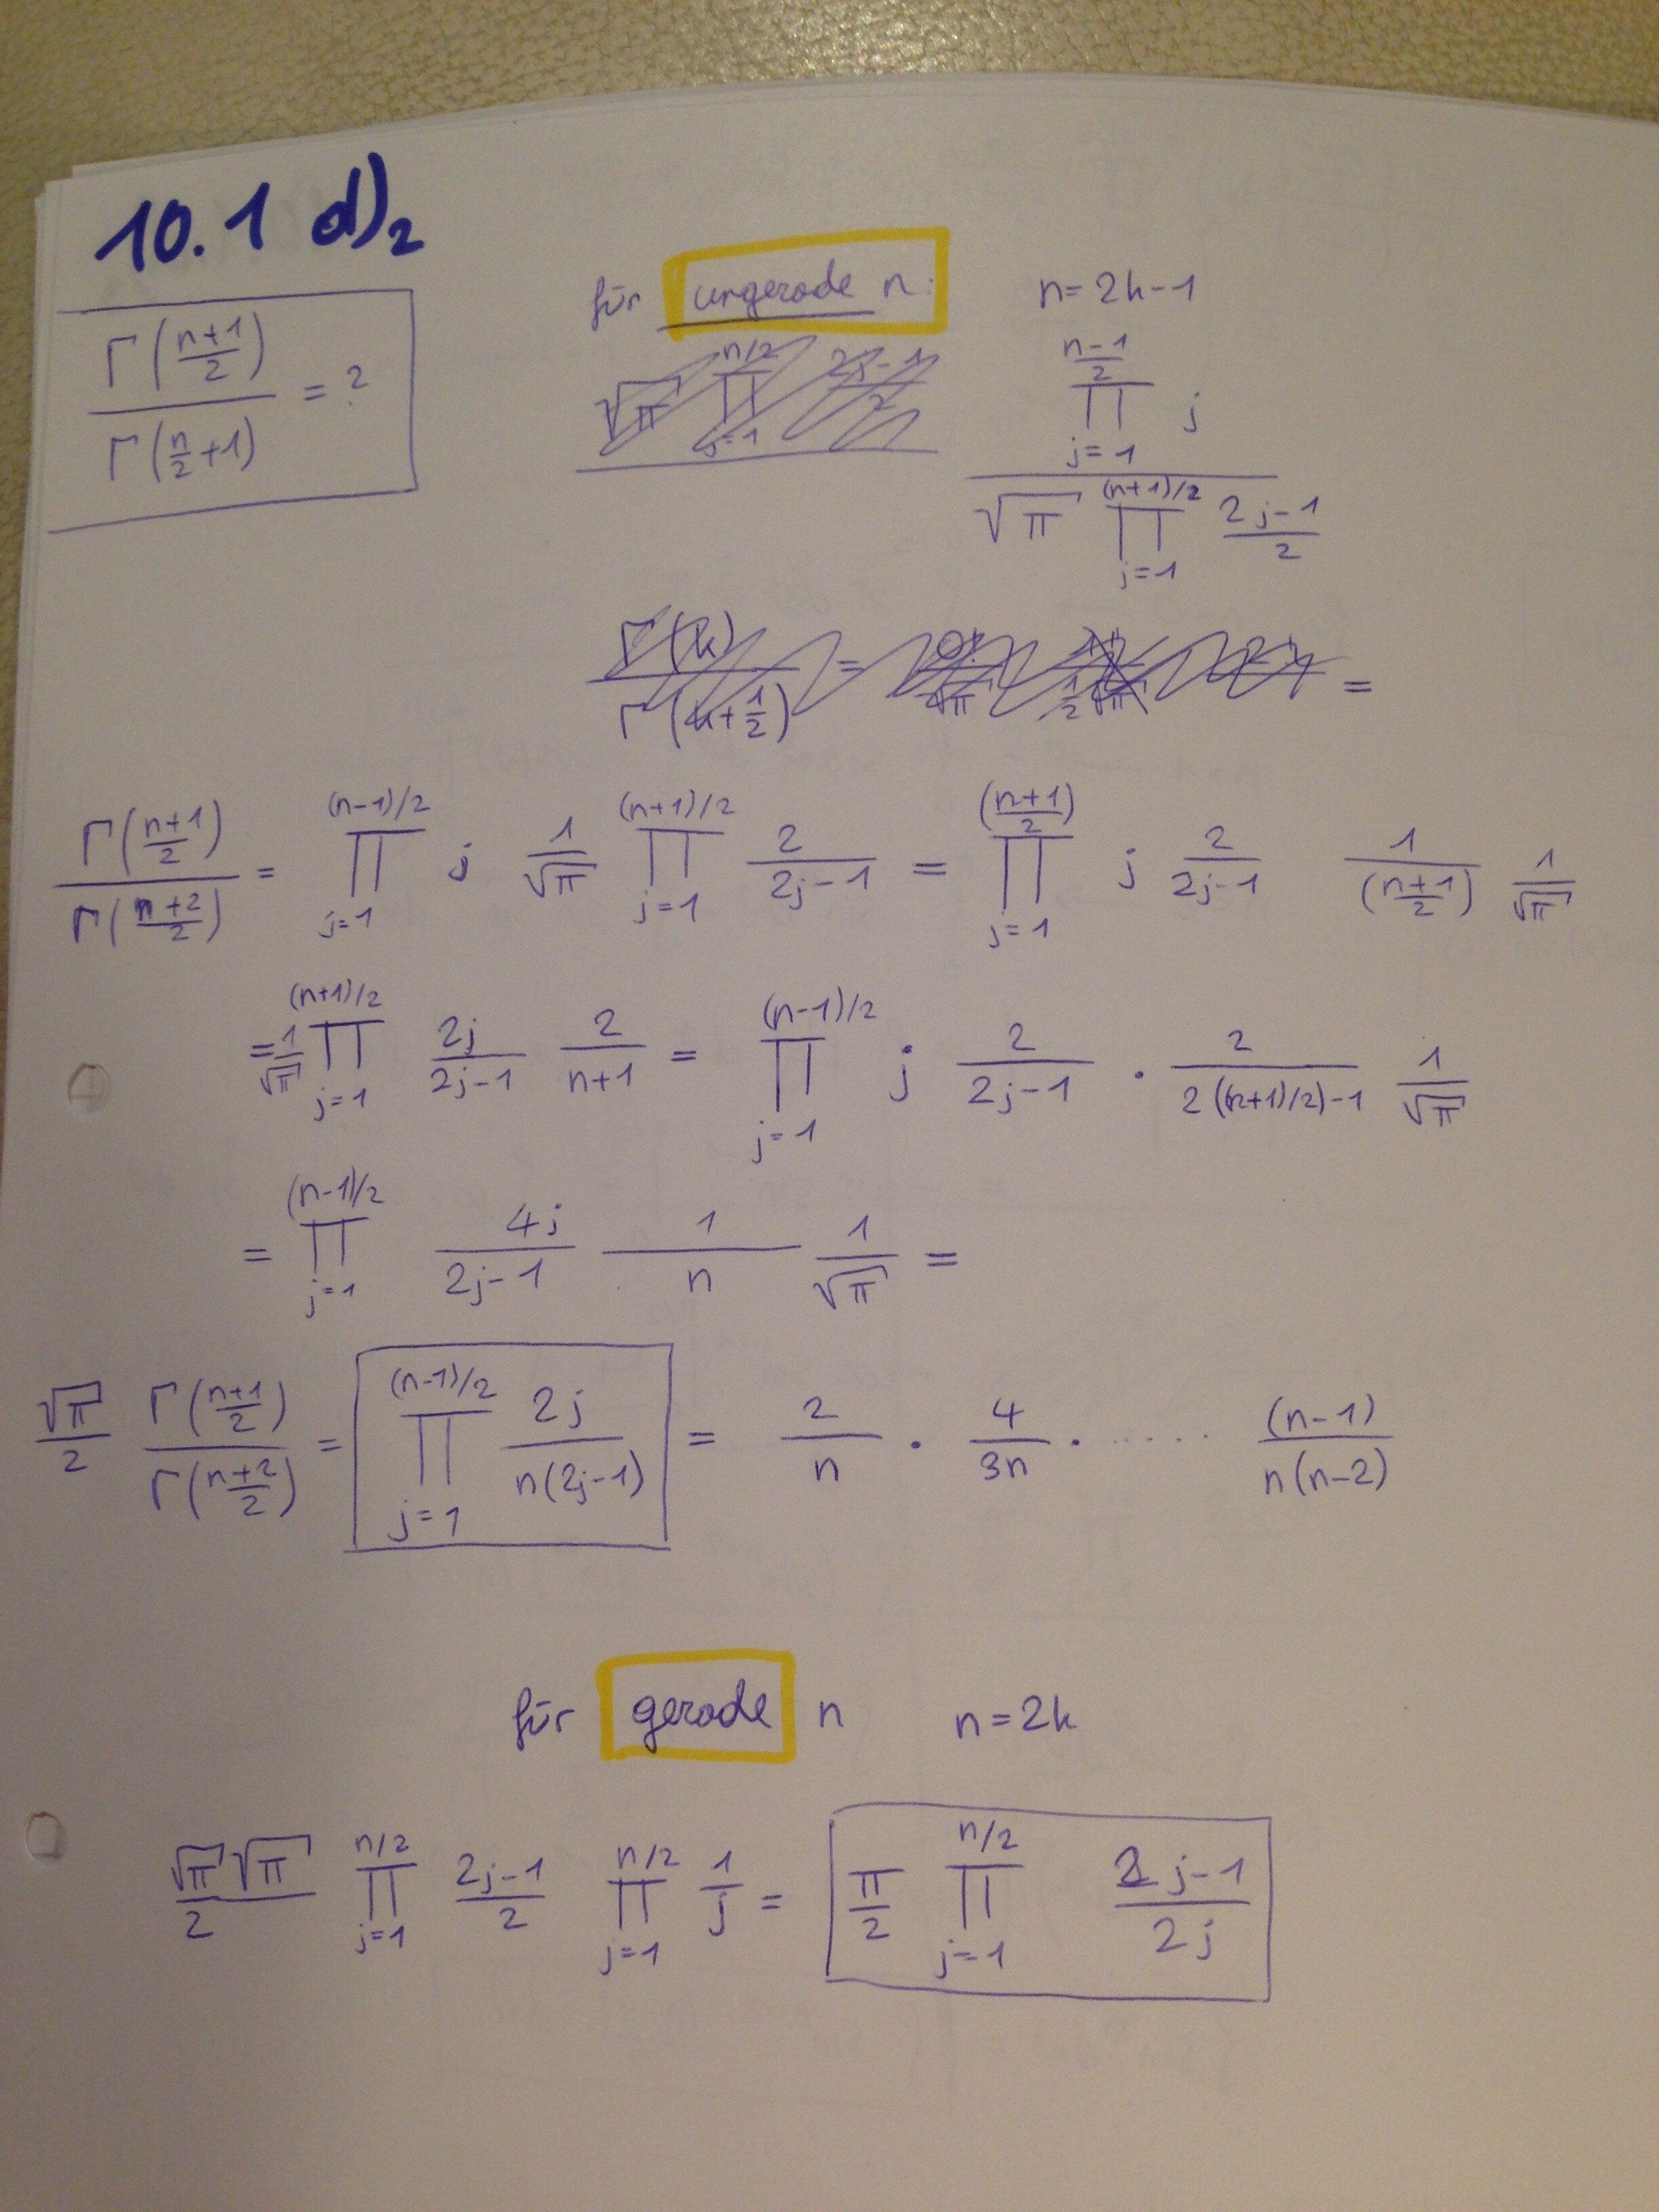 10.1 d)₂
Γ((n+1)/2) / Γ(n/2 + 1) = ?
für ungerade n: n = 2k-1
∏_{j=1}^{(n-1)/2} j / (√π ∏_{j=1}^{(n+1)/2} (2j-1)/2)
Γ(k) / Γ(k+1/2) = =
Γ((n+1)/2) / Γ((n+2)/2) = ∏_{j=1}^{(n-1)/2} j 1/√π ∏_{j=1}^{(n+1)/2} 2/(2j-1) = ∏_{j=1}^{((n+1)/2)} j 2/(2j-1) 1/((n+1)/2) 1/√π
= 1/√π ∏_{j=1}^{(n+1)/2} 2j/(2j-1) 2/(n+1) = ∏_{j=1}^{(n-1)/2} j 2/(2j-1) · 2/(2((n+1)/2)-1) 1/√π
= ∏_{j=1}^{(n-1)/2} 4j/(2j-1) 1/n 1/√π =
√π/2 Γ((n+1)/2) / Γ((n+2)/2) = ∏_{j=1}^{(n-1)/2} 2j/(n(2j-1)) = 2/n · 4/3n · ..... (n-1)/(n(n-2))
für gerade n n = 2k
√π√π/2 ∏_{j=1}^{n/2} (2j-1)/2 ∏_{j=1}^{n/2} 1/j = π/2 ∏_{j=1}^{n/2} (2j-1)/2j